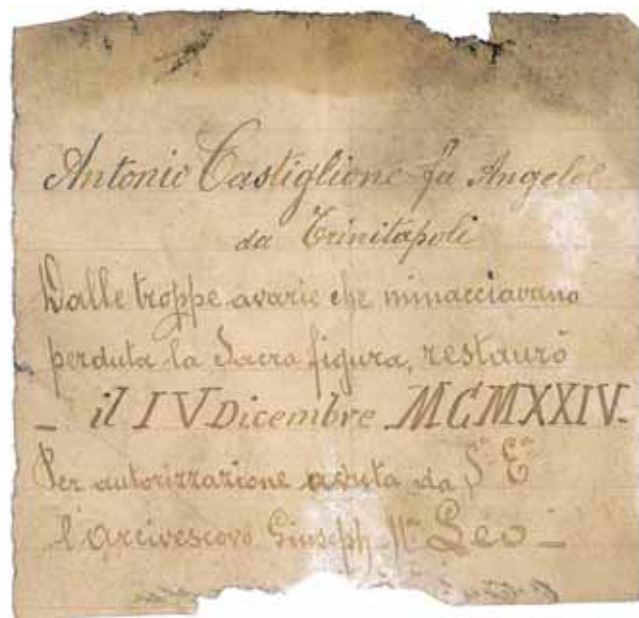 Antonio Castiglione fu Angelo
da Trinitapoli
Dalle troppe avarie che minacciavano
perduta la Sacra figura, restaurò
- il IV Dicembre MCMXXIV -
Per autorizzazione avuta da S. E.
l'Arcivescovo Giuseph Mª Leo -